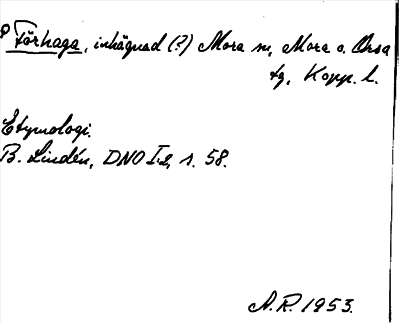 P Förhaga, inhägnad (?) Mora sn, Mora o. Orsa
tg, Kopp. l.
Etymologi.
B. Lindén, DNO I:2, s. 58.
A. R. 1953.